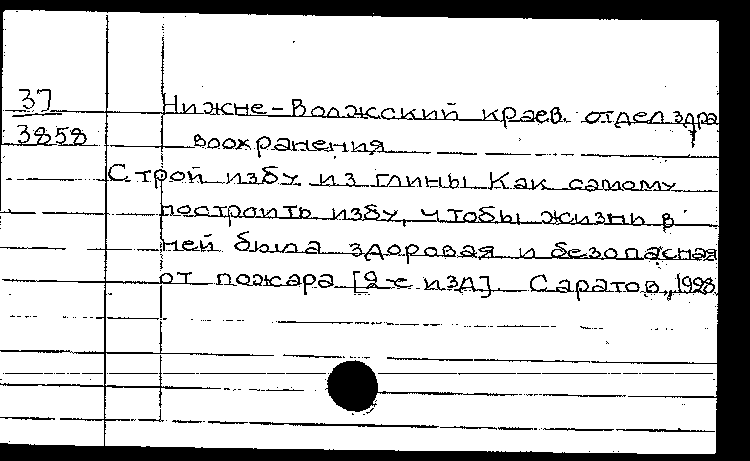 37
3858
Нижне-Волжский краев. отдел здра
воохранения
Строй избу из глины Как самому
построить избу, чтобы жизнь в
ней была здоровая и безопасная
от пожара [2-е изд]. Саратов, 1928